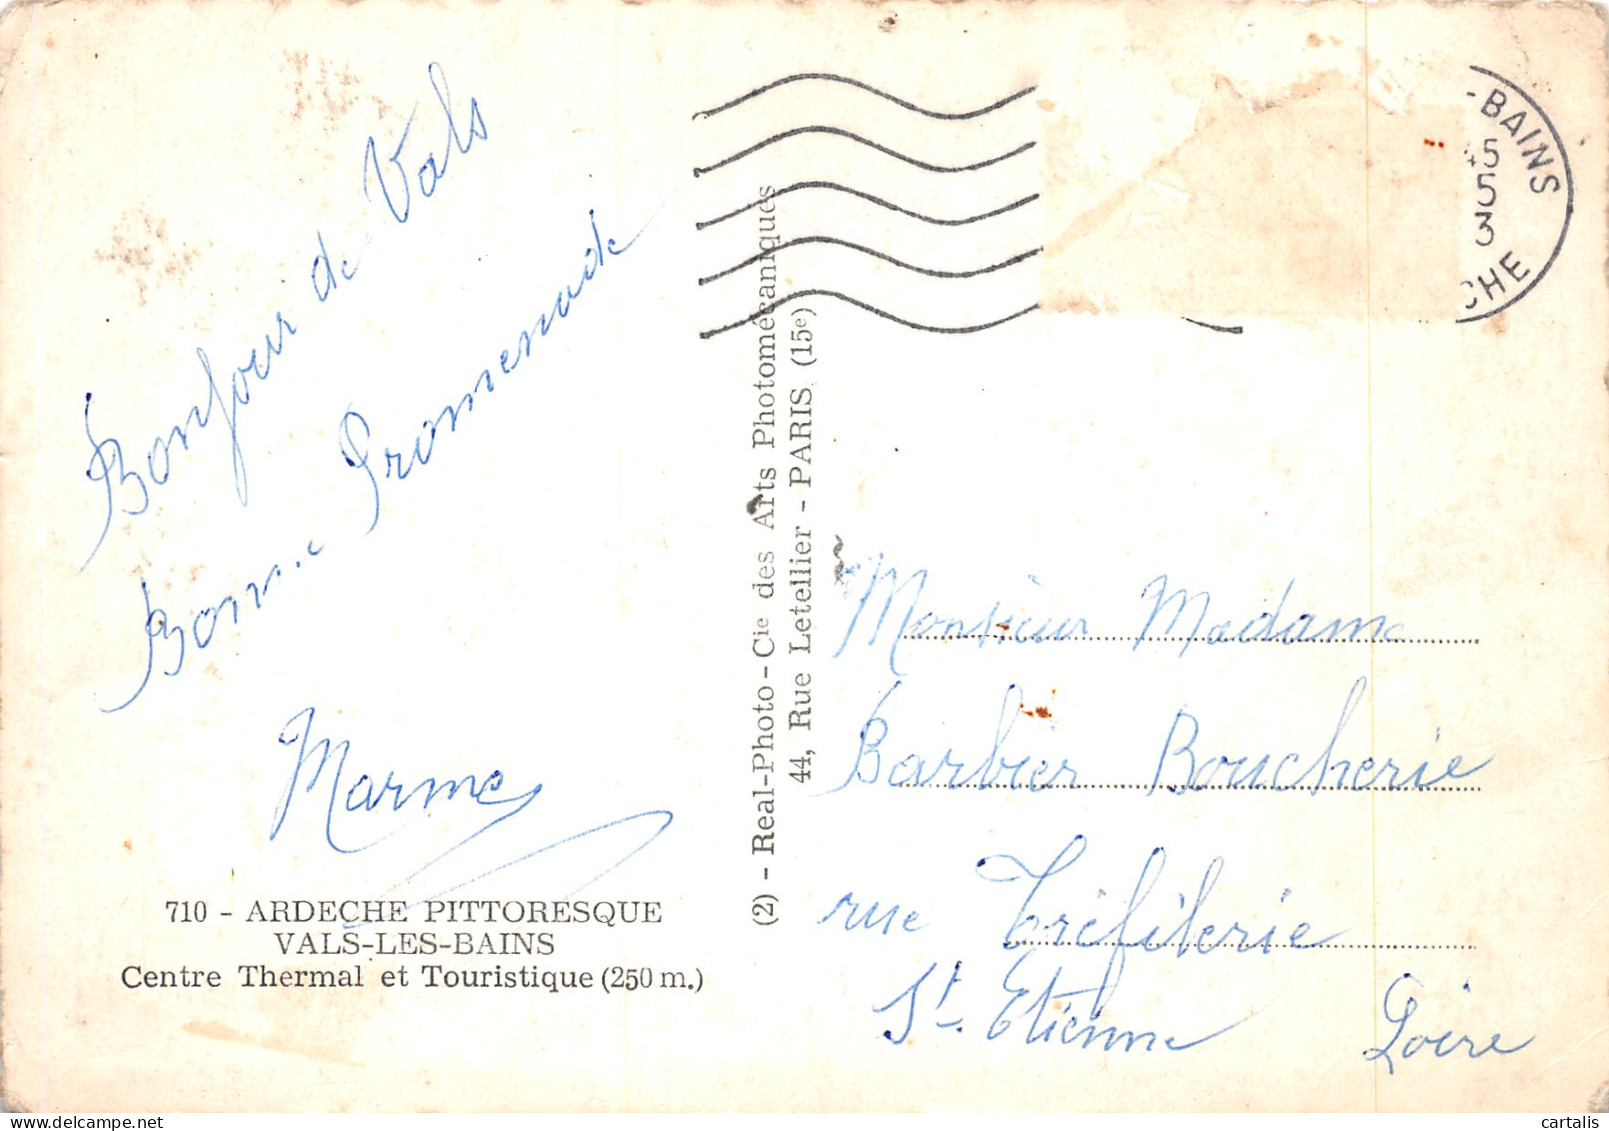 Bonjour de Vals
Bonne Promenade
Marme
710 - ARDECHE PITTORESQUE
VALS-LES-BAINS
Centre Thermal et Touristique (250 m.)
(2) - Real-Photo-Cie des Arts Photomécaniques
44, Rue Letellier - PARIS (15e)
-BAINS
45
5
3
CHE
Monsieur Madame
Barbier Boucherie
rue Tréfilerie
St. Etienne Loire
cartalis